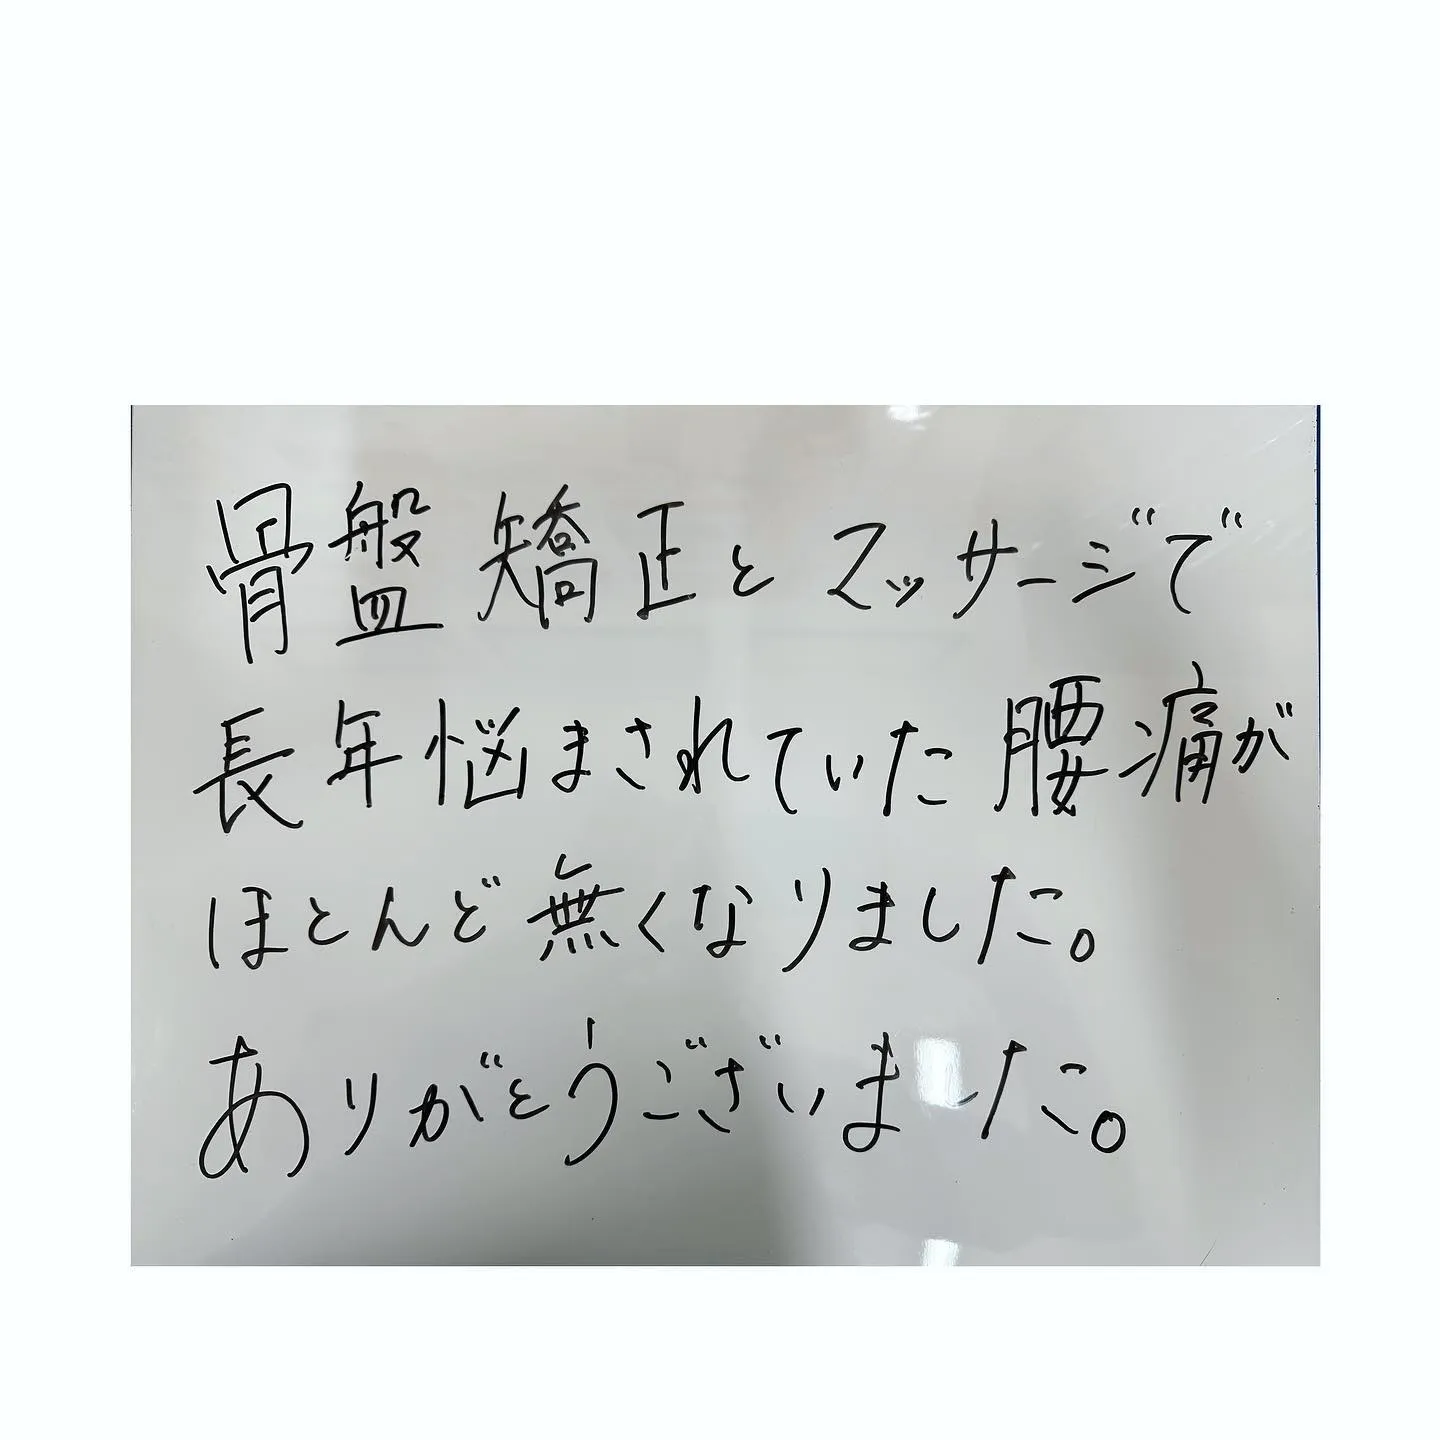 骨盤矯正とマッサージで
長年悩まされていた腰痛が
ほとんど無くなりました。
ありがとうございました。